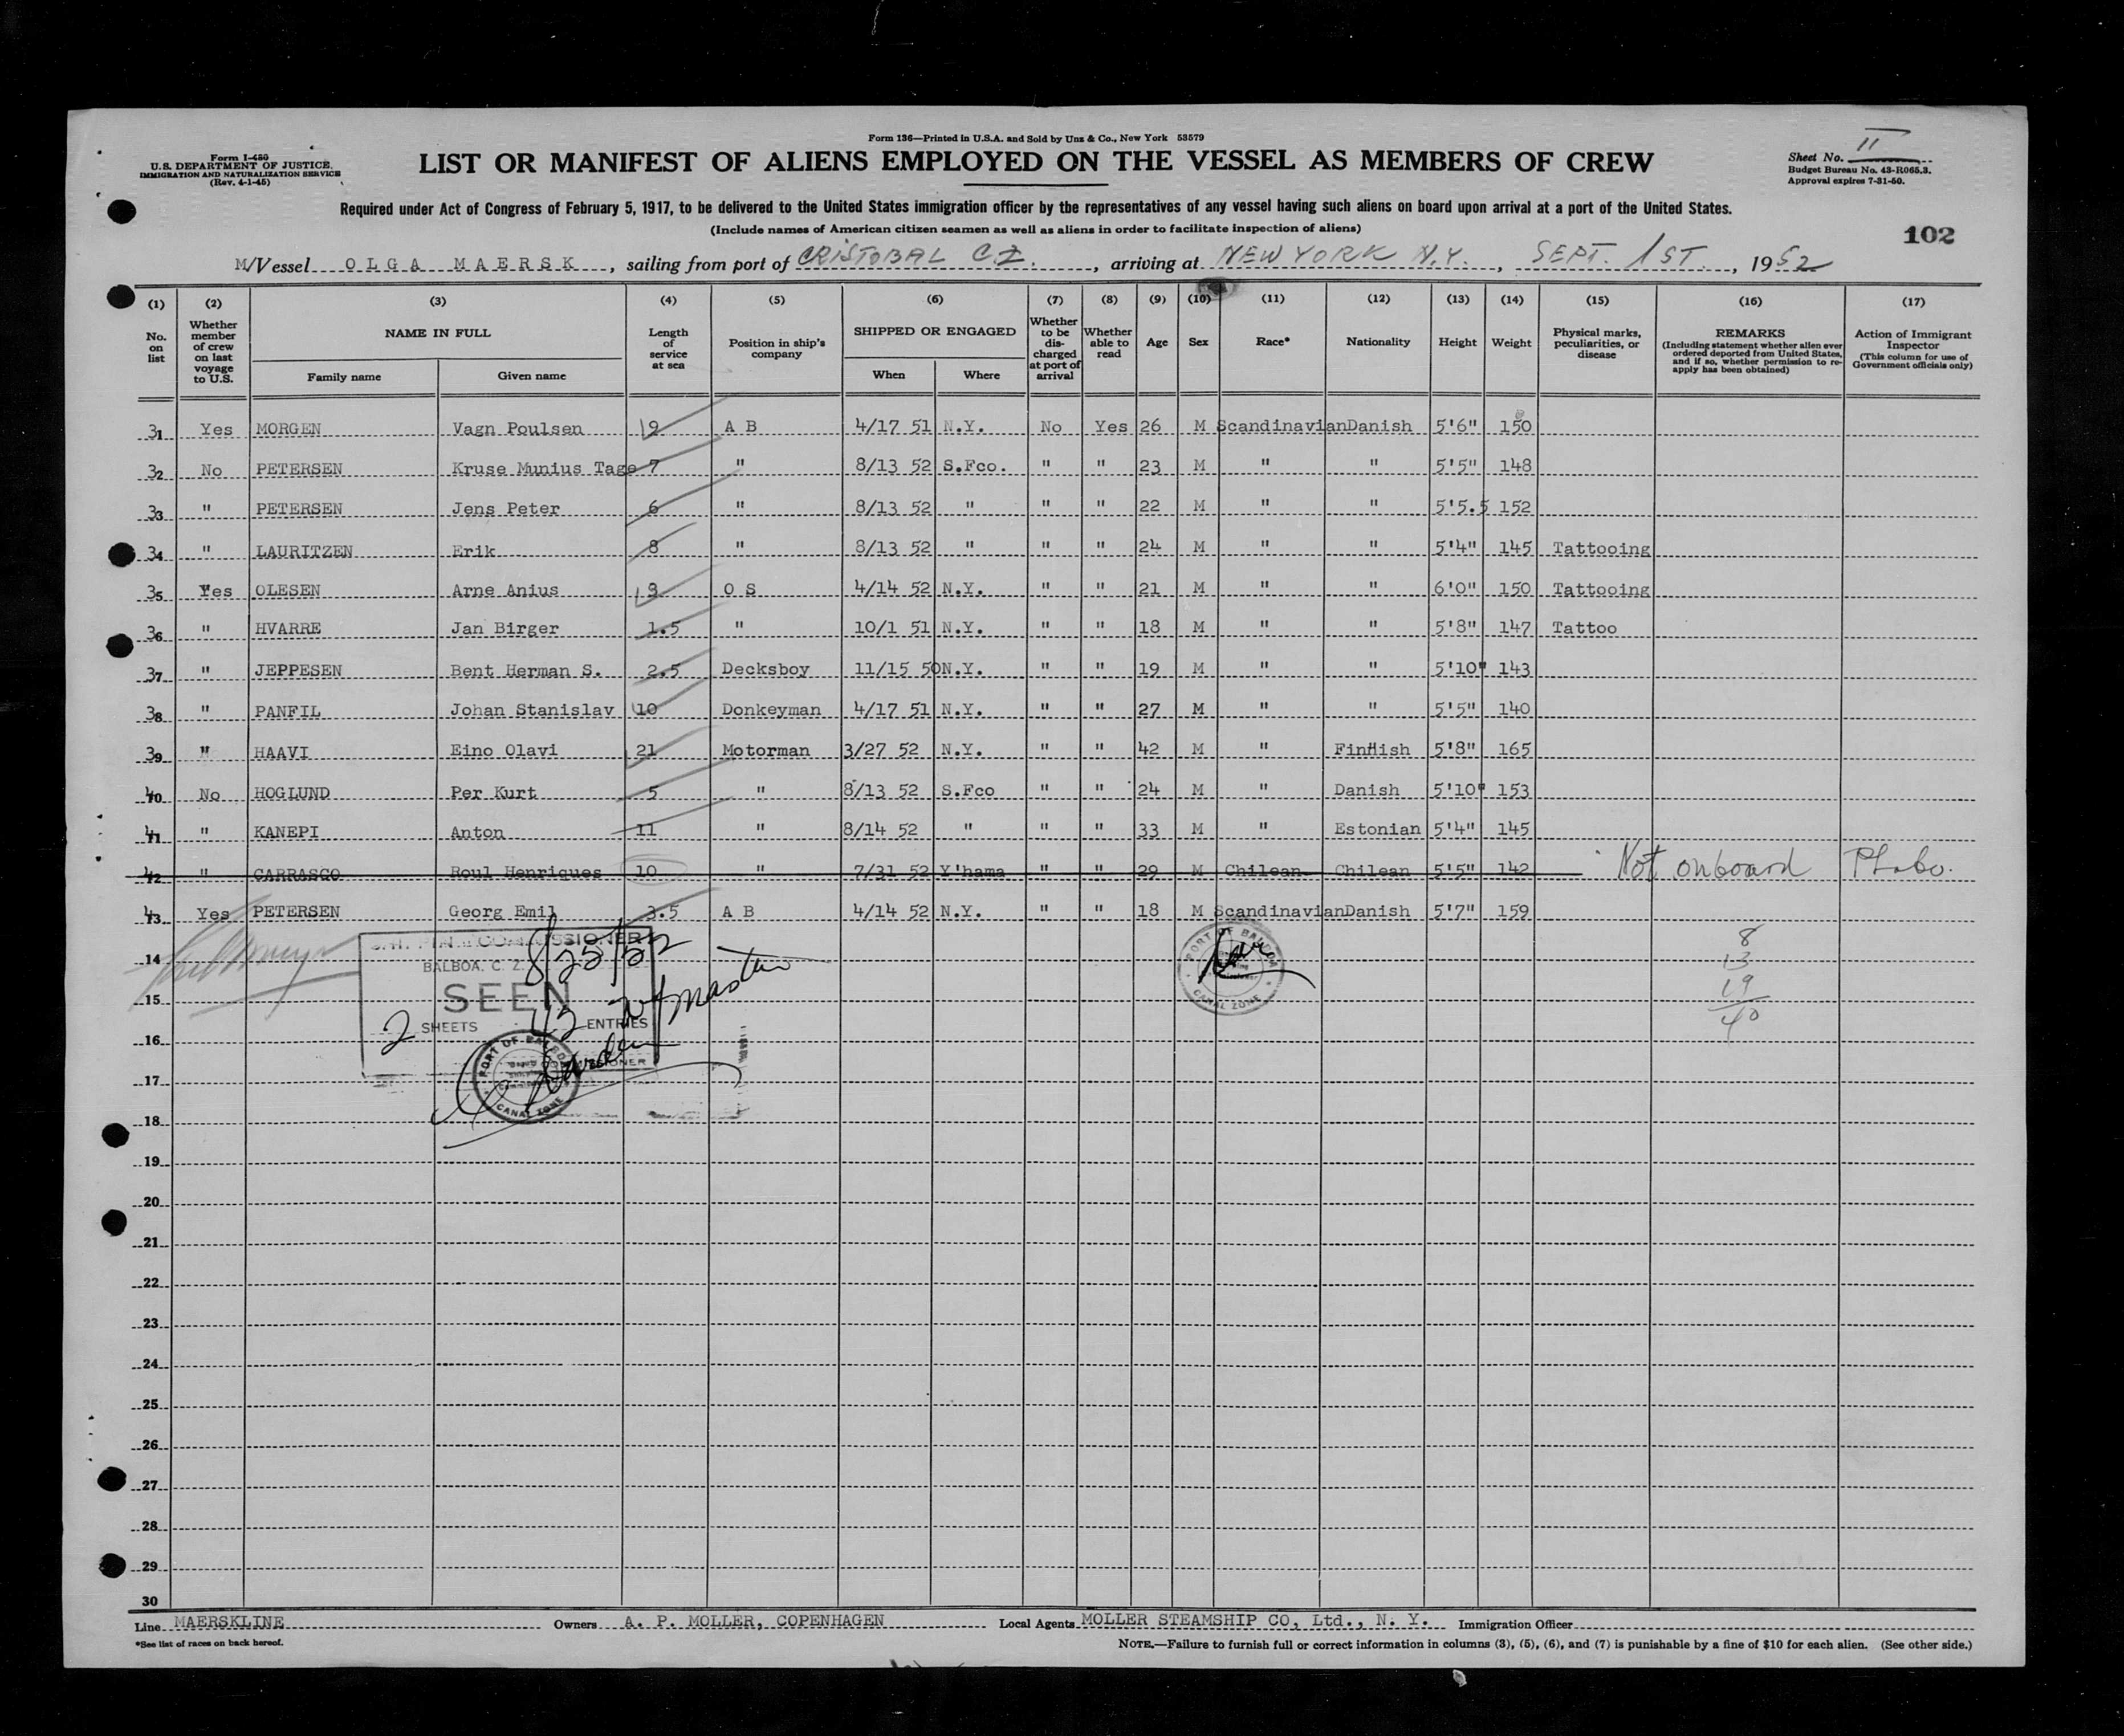 Form 136—Printed in U.S.A. and Sold by Unz & Co., New York 53579
Form I-480
U.S. DEPARTMENT OF JUSTICE
IMMIGRATION AND NATURALIZATION SERVICE
(Rev. 4-1-45)
LIST OR MANIFEST OF ALIENS EMPLOYED ON THE VESSEL AS MEMBERS OF CREW
Sheet No. II
Budget Bureau No. 43-R065.3.
Approval expires 7-31-50.
Required under Act of Congress of February 5, 1917, to be delivered to the United States immigration officer by the representatives of any vessel having such aliens on board upon arrival at a port of the United States.
(Include names of American citizen seamen as well as aliens in order to facilitate inspection of aliens)
102
M/Vessel OLGA MAERSK, sailing from port of CRISTOBAL C.Z., arriving at NEW YORK N.Y., SEPT. 1ST, 1952
(1) (2) (3) (4) (5) (6) (7) (8) (9) (10) (11) (12) (13) (14) (15) (16) (17)
No. on list
Whether member of crew on last voyage to U.S.
NAME IN FULL
Family name Given name
Length of service at sea
Position in ship's company
SHIPPED OR ENGAGED
When Where
Whether to be discharged at port of arrival
Whether able to read
Age
Sex
Race*
Nationality
Height
Weight
Physical marks, peculiarities, or disease
REMARKS
(Including statement whether alien ever ordered deported from United States, and if so, whether permission to re-apply has been obtained)
Action of Immigrant Inspector
(This column for use of Government officials only)
31 Yes MORGEN Vagn Poulsen 9 A B 4/17 51 N.Y. No Yes 26 M Scandinavian Danish 5'6" 150
32 No PETERSEN Kruse Munius Tage 7 " 8/13 52 S.Fco. " " 23 M " " 5'5" 148
33 " PETERSEN Jens Peter 6 " 8/13 52 " " " 22 M " " 5'5.5 152
34 " LAURITZEN Erik 8 " 8/13 52 " " " 24 M " " 5'4" 145 Tattooing
35 Yes OLESEN Arne Anius 3 O S 4/14 52 N.Y. " " 21 M " " 6'0" 150 Tattooing
36 " HVARRE Jan Birger 1.5 " 10/1 51 N.Y. " " 18 M " " 5'8" 147 Tattoo
37 " JEPPESEN Bent Herman S. 2.5 Decksboy 11/15 50 N.Y. " " 19 M " " 5'10" 143
38 " PANFIL Johan Stanislav 10 Donkeyman 4/17 51 N.Y. " " 27 M " " 5'5" 140
39 " HAAVI Eino Olavi 21 Motorman 3/27 52 N.Y. " " 42 M " Finnish 5'8" 165
40 No HOGLUND Per Kurt 5 " 8/13 52 S.Fco " " 24 M " Danish 5'10" 153
41 " KANEPI Anton 11 " 8/14 52 " " " 33 M " Estonian 5'4" 145
42 " CARRASCO Roul Henriques 10 " 7/31 52 Y'hama " " 29 M Chilean Chilean 5'5" 142 Not onboard
43 Yes PETERSEN Georg Emil 3.5 A B 4/14 52 N.Y. " " 18 M Scandinavian Danish 5'7" 159
8
13
19
40
BALBOA, C. Z. 8/25/52
SEEN
2 SHEETS 43 ENTRIES
PORT OF BALBOA
CANAL ZONE
PORT OF BALBOA
CANAL ZONE
14
15
16
17
18
19
20
21
22
23
24
25
26
27
28
29
30
Line MAERSKLINE Owners A. P. MOLLER, COPENHAGEN Local Agents MOLLER STEAMSHIP CO, Ltd., N. Y. Immigration Officer
*See list of races on back hereof.
NOTE.—Failure to furnish full or correct information in columns (3), (5), (6), and (7) is punishable by a fine of $10 for each alien. (See other side.)